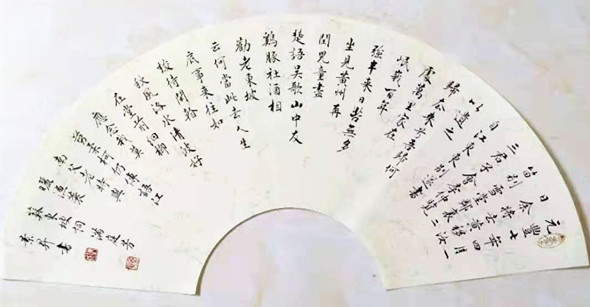 元豐七年四月一
日余將去黃移汝
留別雪堂鄰里二
三君子會李仲覽
自江東來別遂書
以遺之
歸去來兮吾歸何
處萬里家在
岷峨百年
強半來日苦無多
坐見黃州再
閏兒童盡
楚語吳歌山中友
鷄豚社酒相
勸老東坡
云何當此去人生
底事來往如
梭待閒看
秋風洛水清波好
在堂前細柳
應念我莫
剪柔柯仍傳語江
南父老時與
曬漁蓑
蘇東坡詞滿庭芳
書